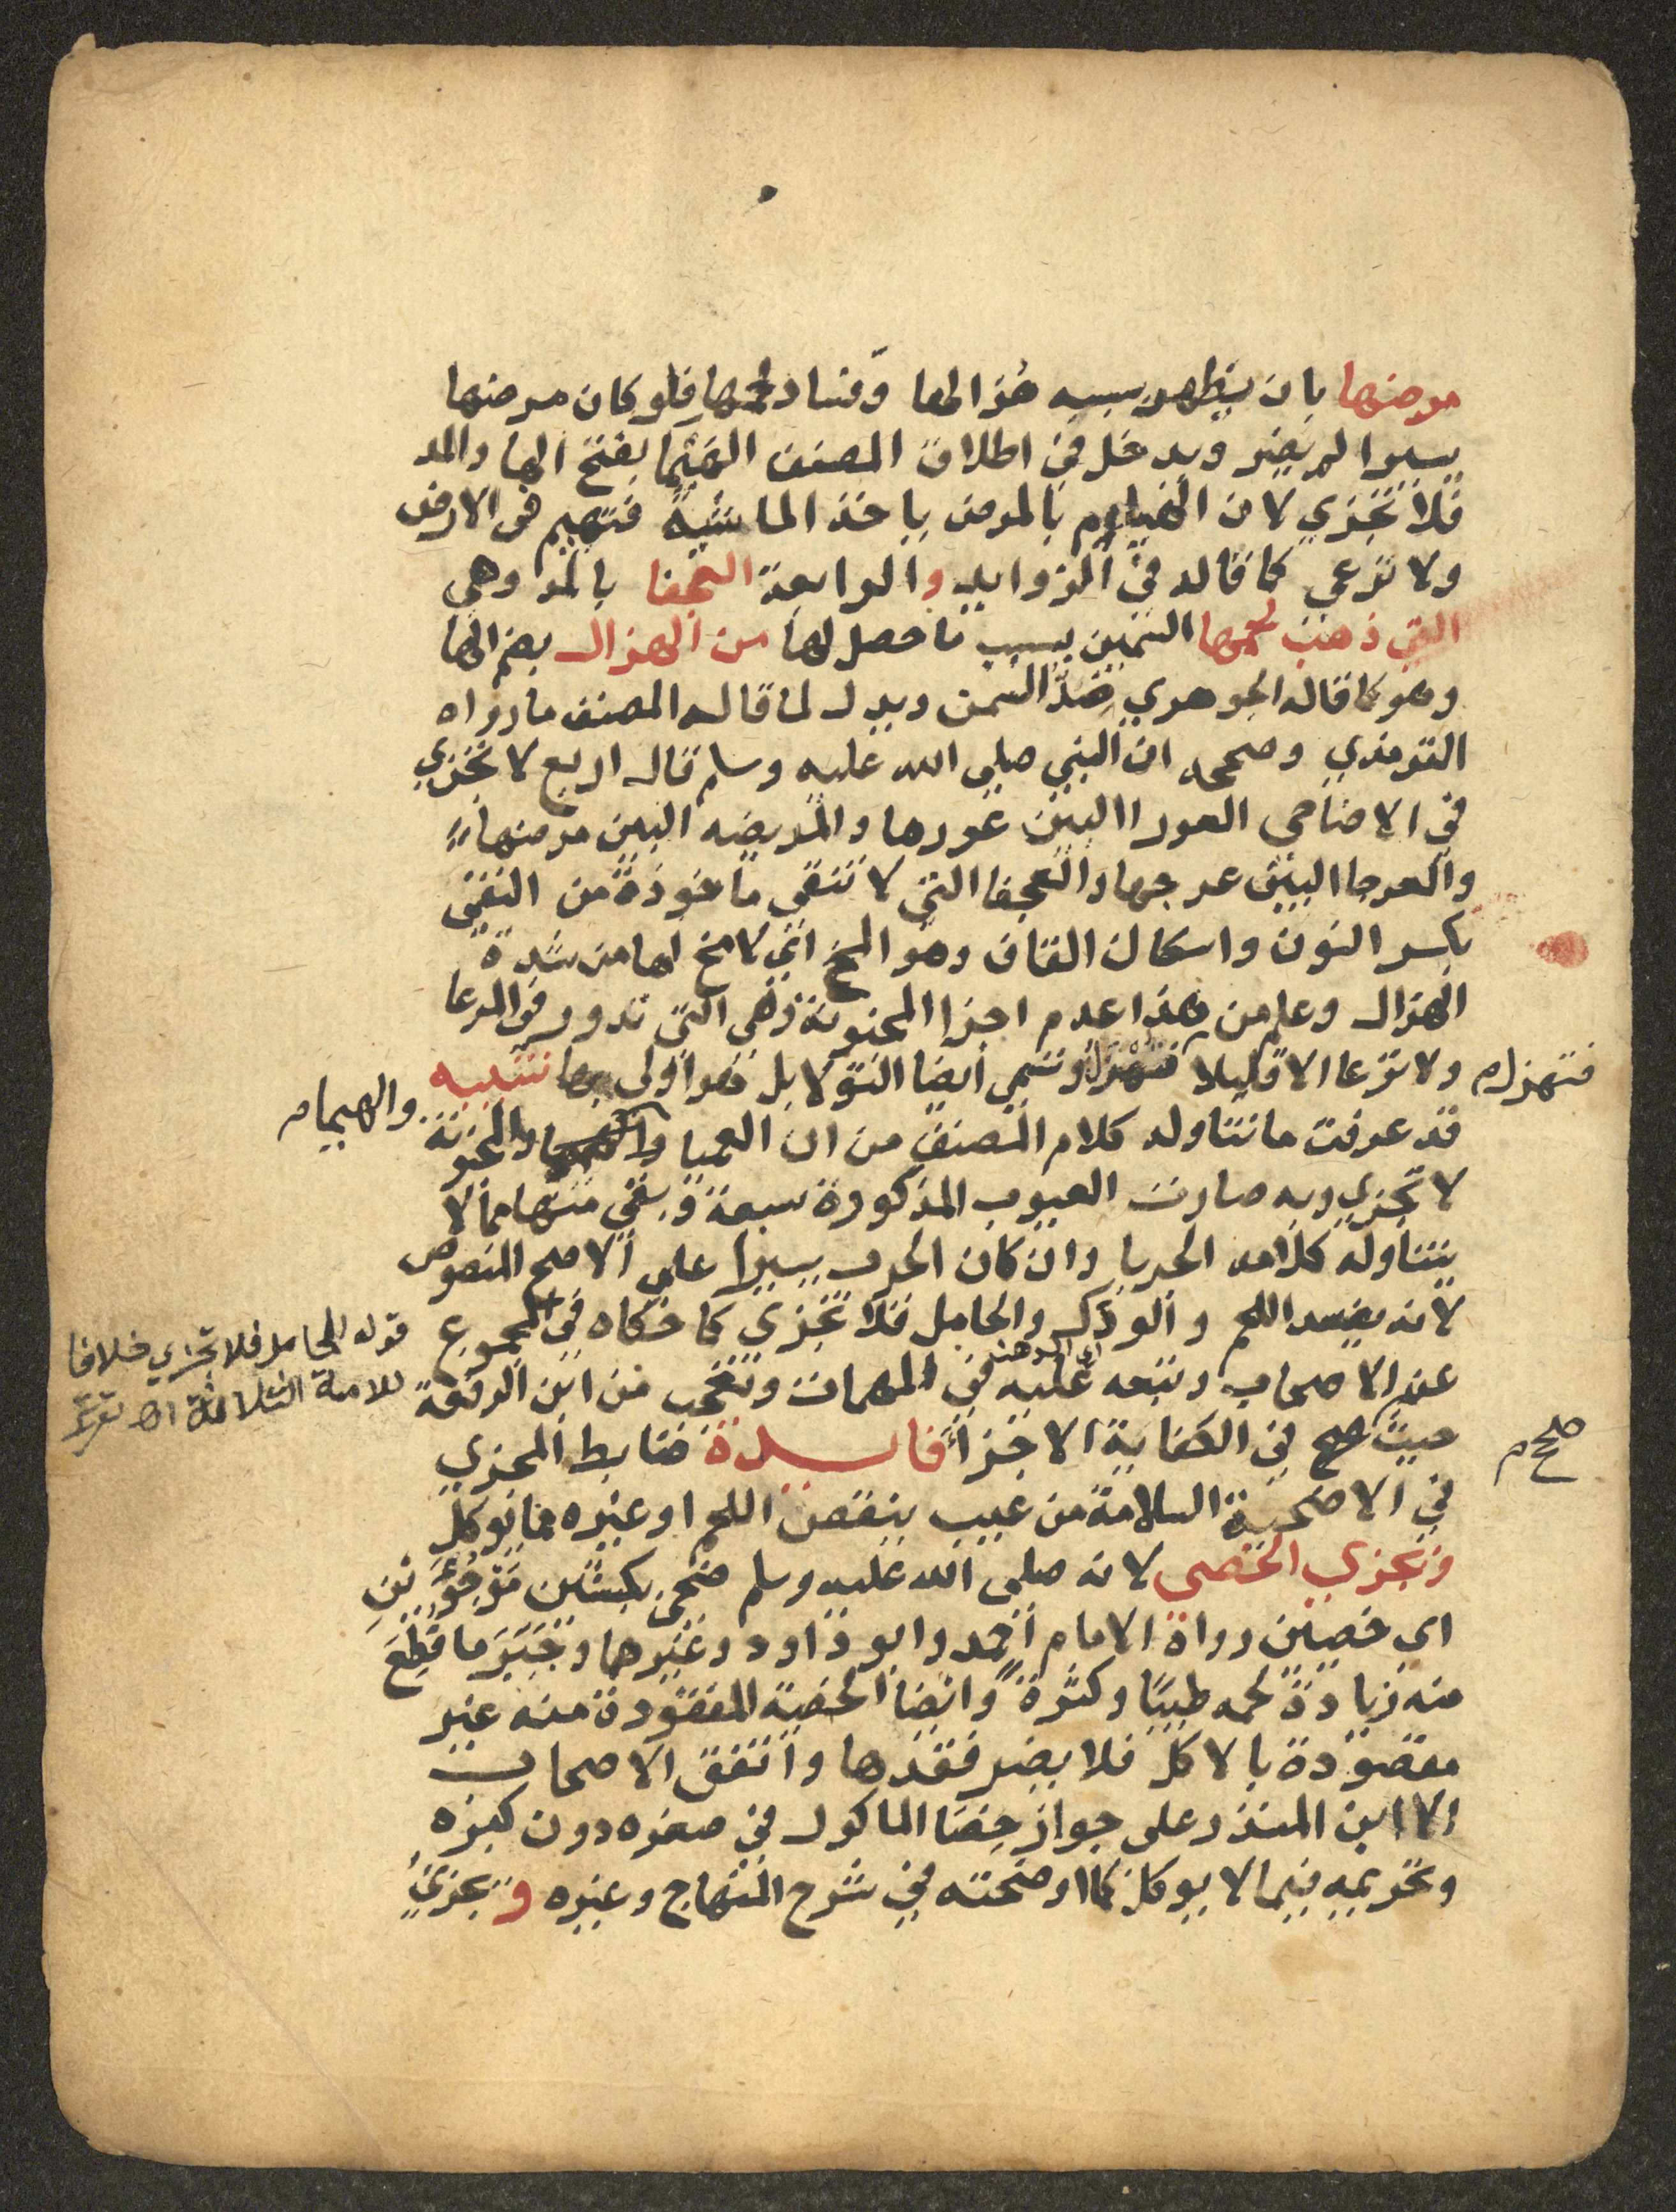 مرضها بان يظهر بسببه هزالها وفساد لحمها فلو كان مرضها
يسيرا لم يضر ويدخل في اطلاق المصنف الهيما بفتح الها والمد
فلا تجزي لان الهيام بالمرض ياخذ الماشية فتهيم في الارض
ولا ترعي كما قاله في الزوايد و الرابعة العجفا بالمد وهي
التي ذهب لحمها السمين بسبب ما حصل لها من الهزال بضم الها
وهو كما قاله الجوهري ضد السمن ويدل لما قاله المصنف ما رواه
الترمذي وصححه ان النبي صلي الله عليه وسلم قال اربع لا تجزي
في الاضاحي العورا البين عورها والمريضه البين مرضها
والعرجا البين عرجها والعجفا التي لا تنقي ماخوذة من النقي
بكسر النون واسكان القاف وهو المخ اي لا مخ لها من شدة
الهزال وعلم من هذا عدم اجزا المجنونة وهي التي تدور في المرعا
ولا ترعا الا قليلا فتهزل وتسمي ايضا التولا بل هو اولي بها تنبيه
فتهزل م
والهيما م
قد عرفت ما تناوله كلام المصنف من ان العميا والمجنونة
لا تجزي وبه صارت العيوب المذكورة سبعة وبقي منها مما لا
يتناوله كلامه الجربا وان كان الجرب يسيرا علي الاصح المنصوص
لانه يفسد اللحم والودك والحامل فلا تجزي كما حكاه في المجموع
قوله الحامل فلا تجزي خلافا
للامة الثلاثة اهـ تقرير
اي الدهن
عن الاصحاب وتبعه عليه في المهمات وتعجب من ابن الرفعة
حيث صحح في الكفاية الاجزاء فايدة ضابط المجزي
صحح م
في الاضحية السلامة من عيب ينقص اللحم او غيره مما يوكل
ويجزي الخصي لانه صلي الله عليه وسلم ضحي بكبشين موجوءين
اي خصيين رواه الامام احمد وابو داود وغيرهما وجبر ما قطع
منه زيادة لحمه طيبا وكثرة وايضا الخصية المفقودة منه غير
مقصودة بالاكل فلا يضر فقدها واتفق الاصحاب
الا ابن المنذر علي جواز خصا الماكول في صغره دون كبره
وتحريمه فيما لا يوكل كما اوضحته في شرح المنهاج وغيره و يجزي